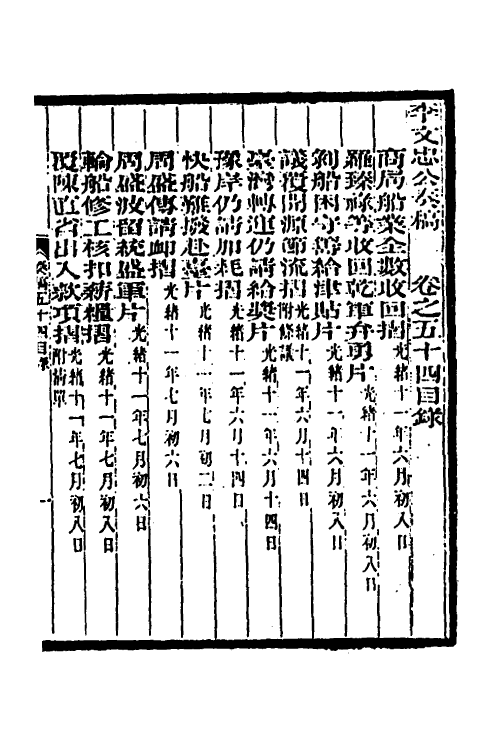 李文忠公奏稿　卷之五十四目錄
商局船業全數收回摺 光緒十一年六月初八日
羅臻祿等收回乾軍弁勇片 光緒十一年六月初八日
剝船困守籌給津貼片 光緒十一年六月初八日
議覆開源節流摺 附條議 光緒十一年六月十四日
臺灣轉運仍請給獎片 光緒十一年六月十四日
豫岸仍請加耗摺 光緒十一年六月十四日
快船難撥赴臺片 光緒十一年七月初二日
周盛傳請卹摺 光緒十一年七月初六日
周盛波留統盛軍片 光緒十一年七月初六日
輪船修工核扣薪糧摺 光緒十一年七月初八日
覆陳直省出入款項摺 附清單 光緒十一年七月初八日
奏稿五十四目錄
一